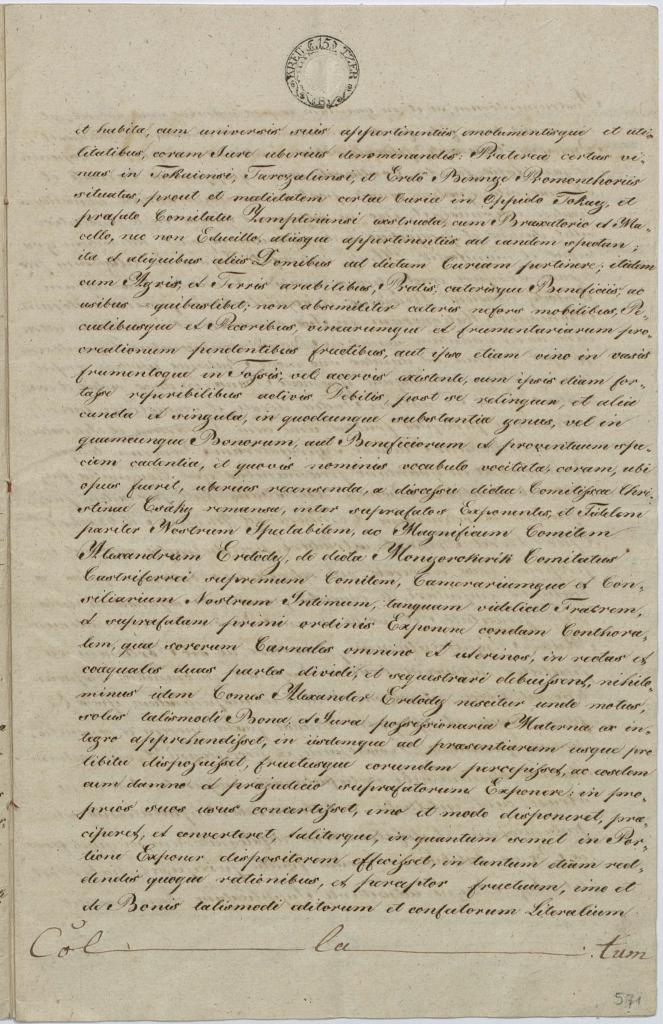 KREU C. 15 S. TZER
et habita, cum universis suis appertinentiis, emolumentisque et uti-
litatibus, coram Jure uberius denominandis: Praterea certas vi-
neas in Tokaiensi, Tarczaliensi, et Erdő Bennye Promonthoriis
situatas, prout et medietatem certae Curiae in Oppido Tokay, et
praefato Comitatu Zempleniensi exstructa, cum Braxatorio et Ma-
cello, nec non Educillo, aliisque appertinentiis ad eandem spectan:;
ita et aliquibus aliis Domibus ad dictam Curiam pertinere; itidem
cum Agris, et Terris arabilibus, Pratis, caterisque Beneficiis, ac
usibus quibuslibet; non absimiliter cateris rebus mobilibus, Pe-
cudibusque et Pecoribus, vinearumque et frumentariarum pro-
creationum pendentibus fructibus, aut ipso etiam vino in vasis
frumentoque in Fossis, vel acervis existente, cum ipsis etiam for-
tasse reperibilibus activis Debitis, post se relinquen:, et alia
cuncta et singula, in quodcunque substantia genus, vel in
quamcunque Bonorum, aut Beneficiorum et proventuum spe-
ciem cadentia, et quovis nominis vocabulo vocitata, coram, ubi
opus fuerit, uberius recensenda, a discessu dictae Comitissae Chri-
stinae Csáky remansa, inter suprafatos Exponentes, et Fidelem
pariter Nostrum Spectabilem, ac Magnificum Comitem
Alexandrum Erdődy, de dicta Monyorokerék Comitatus
Castriferrei supremum Comitem, Camerariumque et Con-
siliarium Nostrum Intimum, tanquam videlicet Fratrem,
et suprafatam primi ordinis Exponen: condam Conthora-
lem, qua sororum Carnales omnino et uterinos, in rectas et
coaequales duas partes dividi, et sequestrari debuissent, nihilo-
minus idem Comes Alexander Erdődy nescitur unde motus,
solus talismodi Bona, et Jura possessionaria Materna ex in-
tegro apprehendisset, in iisdemque ad praesentiarum usque pro
libitu disposuisset, fructusque eorundem percepisset, ac eosdem
cum damno et praejudicio suprafatorum Exponen: in pro-
prios suos usus convertisset, imo et modo disponeret, per-
ciperet, et converteret, taliterque, in quantum semet in Por-
tione Exponen: dispositorem effecisset, in tantum etiam red-
dendis quoque rationibus, et perceptor: fructuum, imo et
de Bonis talismodi editorum et confectorum Literalium
Col la tum
571